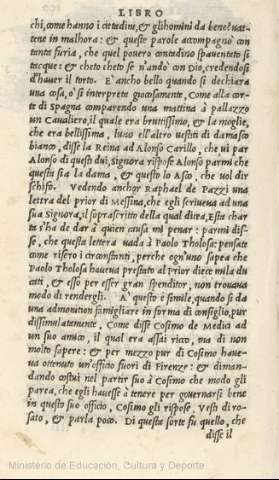 LIBRO
chi, come hanno i cittadini, & gli homini da bene: vat
tene in malhora: & queste parole accompagnò con
tanta furia, che quel povero cittadino spaventato si
tacque: & cheto cheto se n'andò con Dio, credendosi
d'haver il torto. E' ancho bello quando si dechiara
una cosa, o' si interprete giocosamente. Come alla cor-
te di Spagna comparendo una mattina à pallazzo
un Cavaliero, il quale era bruttissimo, & la moglie,
che era bellissima, l'uno e l'altro vestiti di damasco
bianco, disse la Reina ad Alonso Carillo, che vi par
Alonso di questi dui, signora rispose Alonso parmi che
questa sia la dama, & questo lo Asco, che vol dir
schifo. Vedendo anchor Raphael de Pazzi una
letera del prior di Messina, che egli scriveva ad una
sua Signora, il soprascritto della qual dicea, Esta char
ta s'ha de dar à quien causa mi penar: parmi dis-
se, che questa lettera vada à Paolo Tholosa: pensate
come risero i circonstanti, perche ogn'uno sapea che
Paolo Tholosa haveva prestato al Prior diece mila du
cati, & esso per esser gran spenditor, non trovava
modo di rendergli. A' questo è simile, quando si da
una admonition famigliare in forma di consiglio, pur
dissimulatamente, Come disse Cosimo de Medici ad
un suo amico, il qual era assai ricco, ma di non
molto sapere: & per mezzo pur di Cosimo have-
va ottenuto un'officio fuori di Firenze: & diman-
dando costui nel partir suo à Cosimo che modo gli
parea, che egli havesse à tenere per governarsi bene
in questo suo officio, Cosimo gli rispose, Vesti di ro-
sato, & parla poco. Di questa sorte fu quello, che
disse il
Ministerio de Educación, Cultura y Deporte